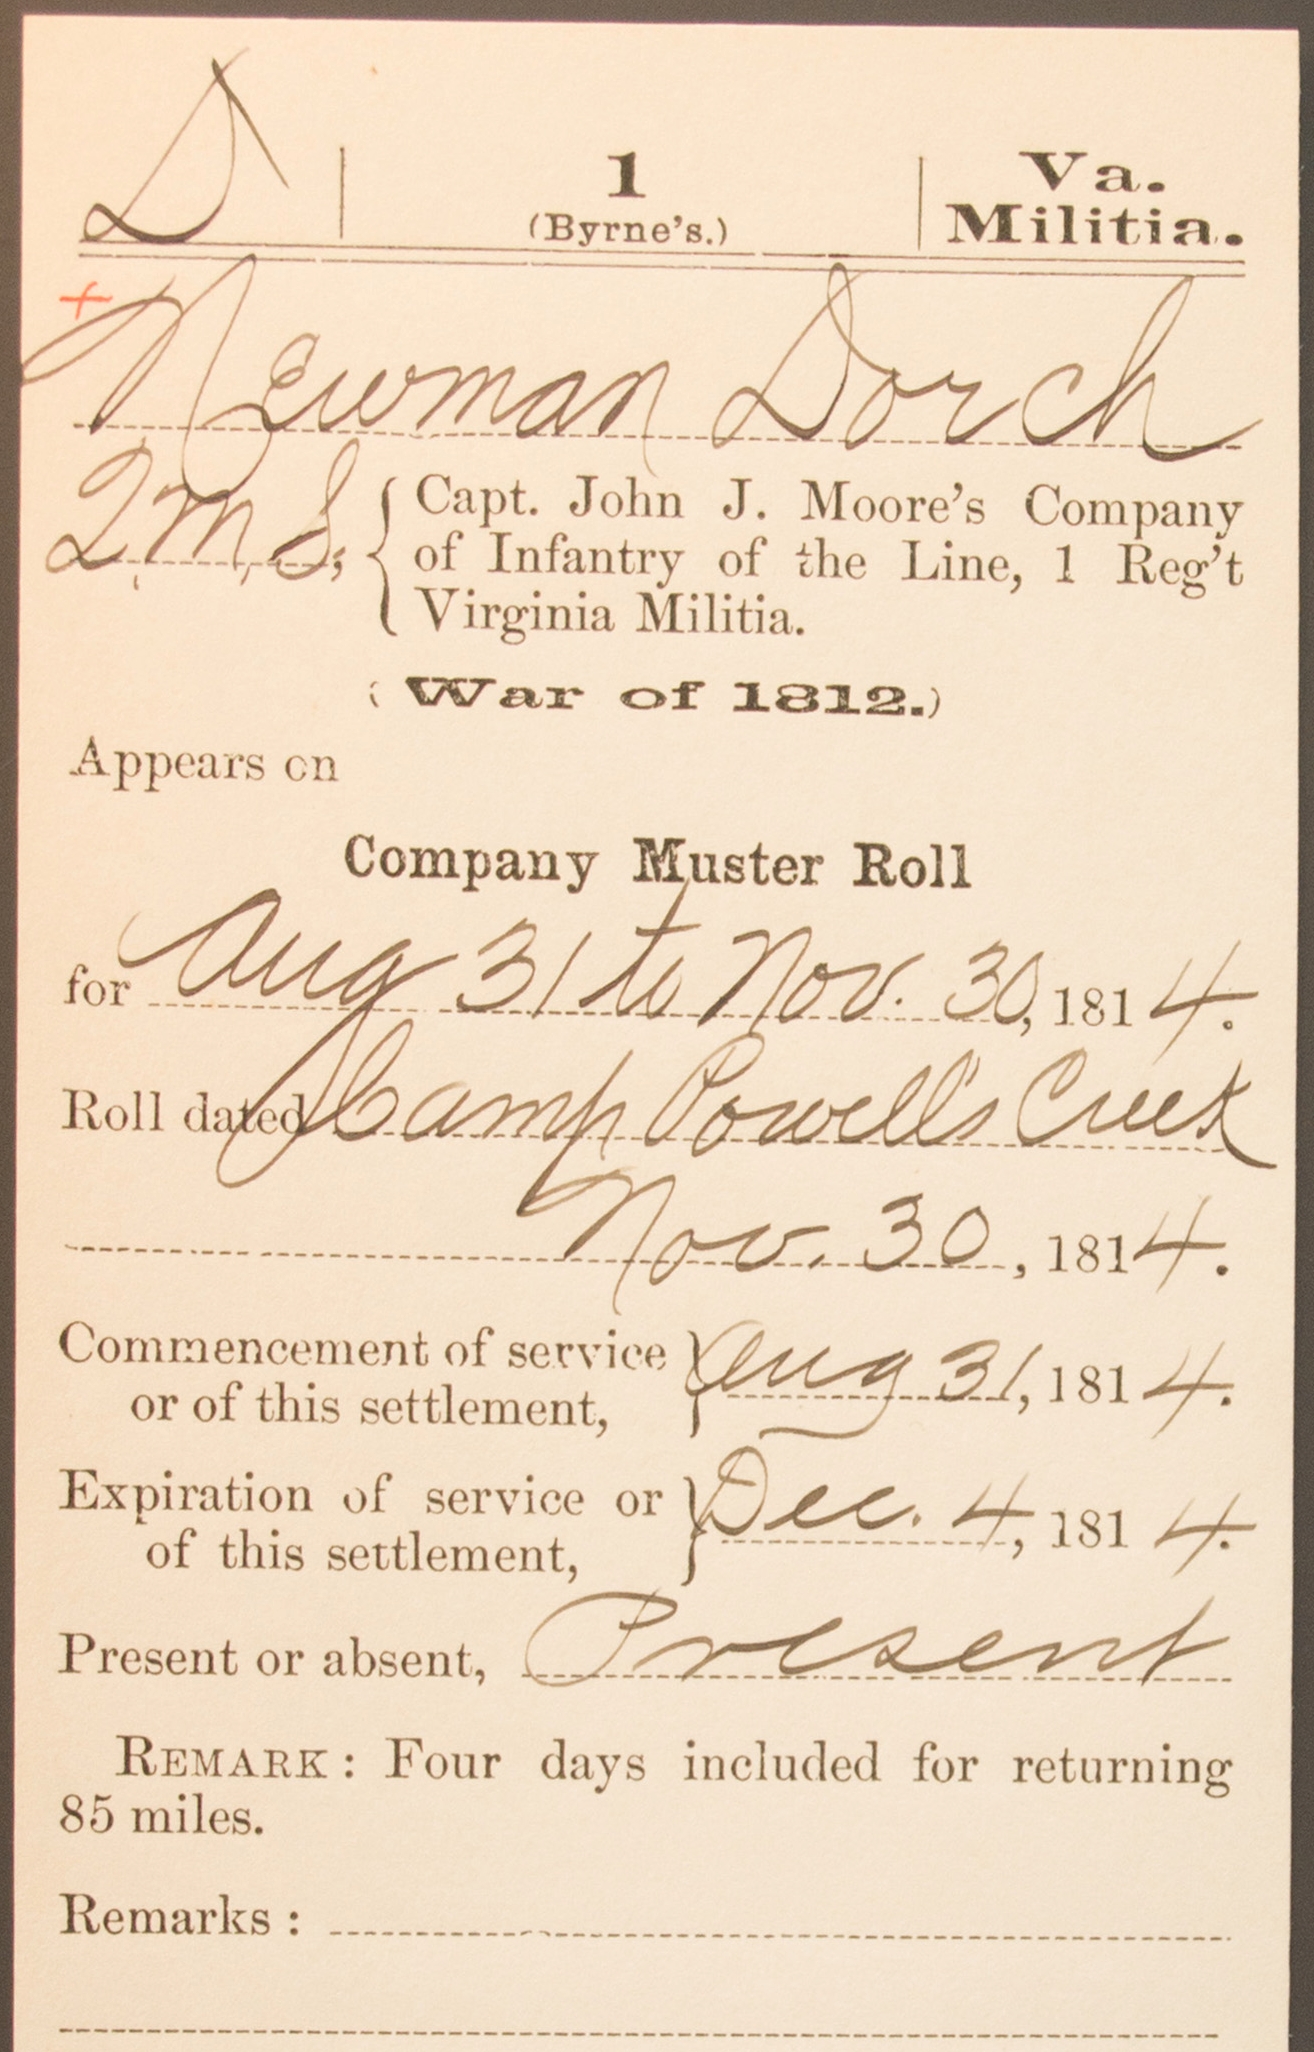 D | 1 | Va.
(Byrne's.) Militia.
+
Newman Dorch
Q.M.S.; { Capt. John J. Moore's Company
of Infantry of the Line, 1 Reg't
Virginia Militia.
(War of 1812.)
Appears on
Company Muster Roll
for Aug 31 to Nov. 30, 1814.
Roll dated Camp Powell's Creek
Nov. 30, 1814.
Commencement of service
or of this settlement, } Aug 31, 1814.
Expiration of service or
of this settlement, } Dec. 4, 1814.
Present or absent, Present
REMARK: Four days included for returning
85 miles.
Remarks: